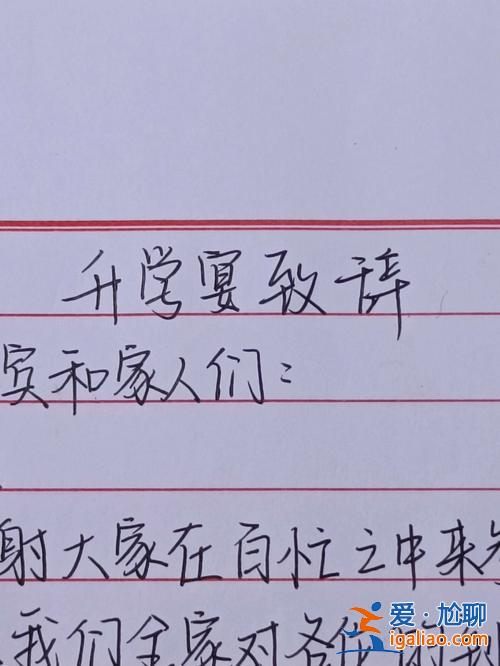 升学宴致辞
宾和家人们：
射大家在百忙之中来
我们全家对各位
爱·尴聊
igaliao.com